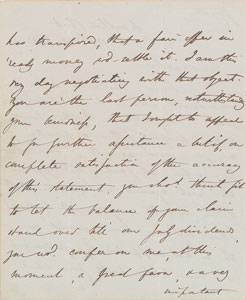 has transpired, that a fair offer in
ready money wd settle it. I am this
very day negotiating with that object.
You are the last person, notwithstanding
your kindness, that I ought to appeal
to for further assistance &
complete satisfaction of the accuracy
of this statement, you shd think fit
to let the balance of your claim
stand over till our July dividends
you wd. confer on me at this
moment, a great favor & a very
important